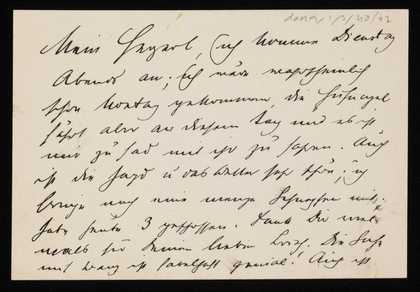 Mein Herzerl, ich komme Dienstag
Abends an, ich wäre wahrscheinlich
schon Montag gekommen, die
fährt aber an diesem Tag und es ist
mir zu fad mit ihr zu fahren. Auch
ist die Jagd u das Wetter sehr schön; ich
bringe noch eine Menge Schnepfen mit;
habe heute 3 geschossen. Dank Dir noch-
mals für Deinen lieben Brief. Die Sache
mit ist fabelhaft genial! Auch ist